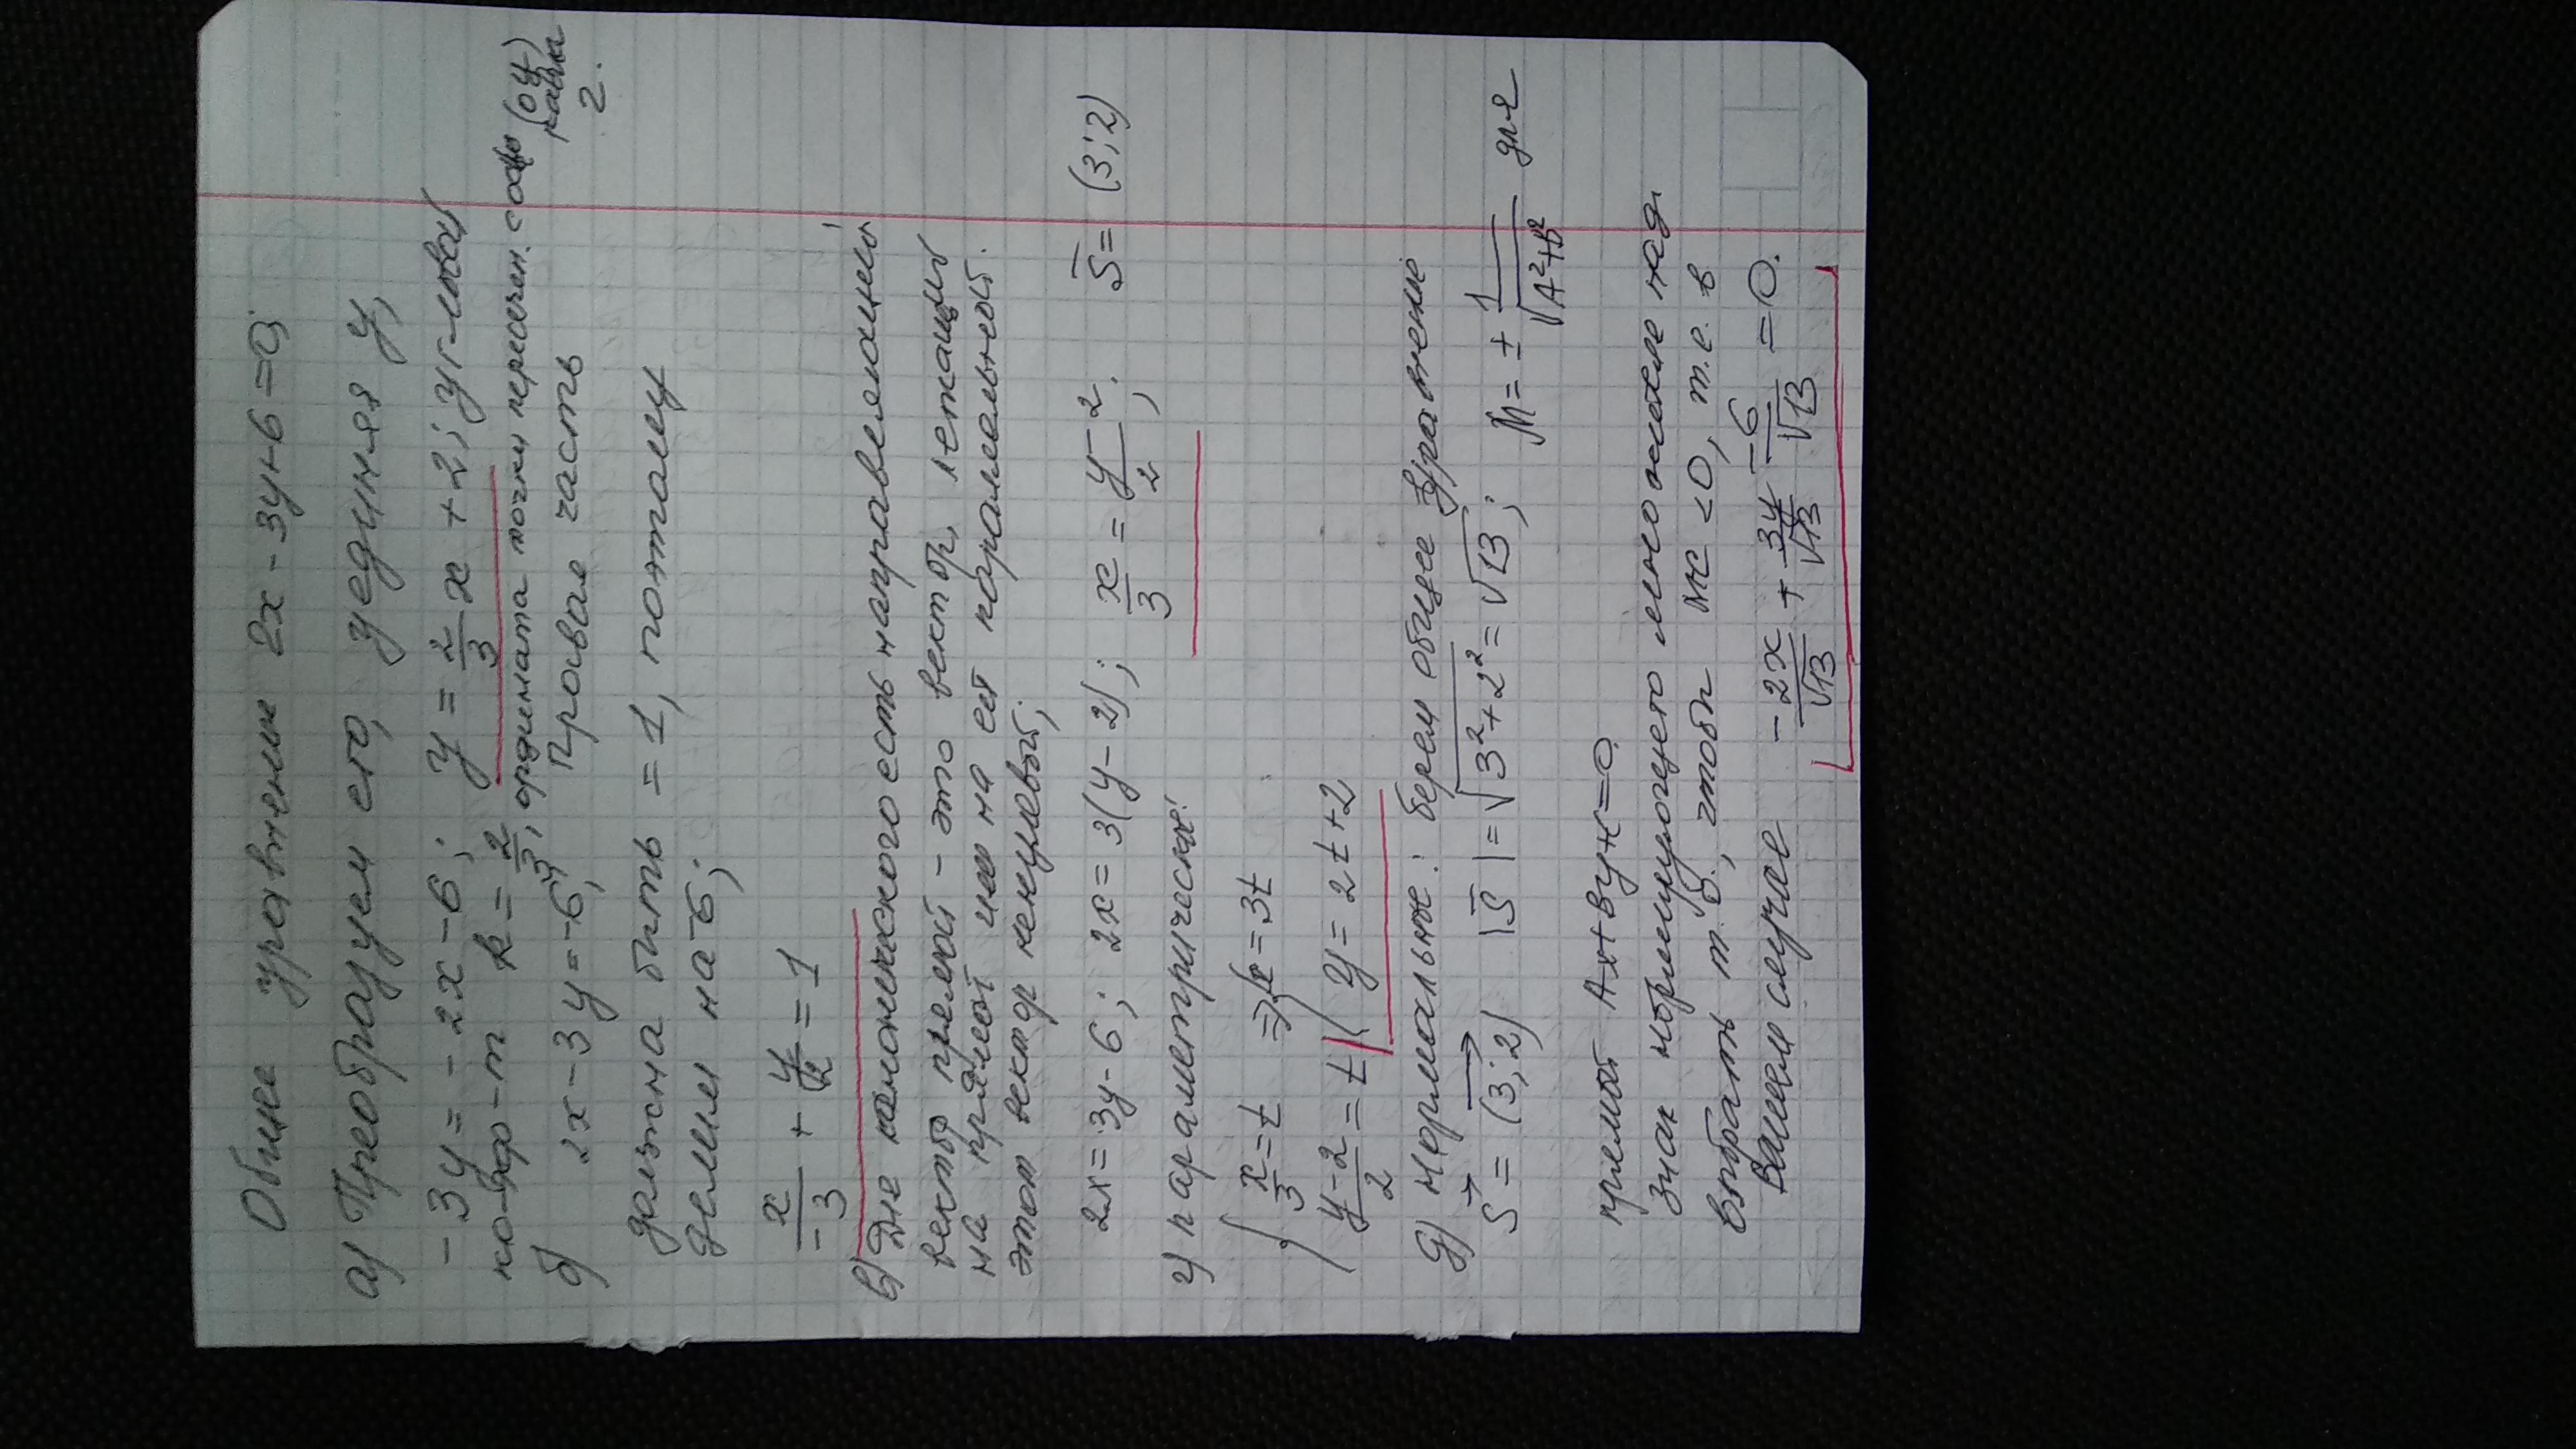 Общее уравнение 2x - 3y + 6 = 0;
а) Преобразуем его, уединяя y,
-3y = -2x - 6; y = 2/3 x + 2; угловой
коэф-т k = 2/3, ордината точки пересечен. с осью (оy) равна 2.
б) 2x - 3y = -6; Правая часть
должна быть = 1, поэтому
делим на -6;
x/-3 + y/2 = 1
в) Для канонического есть направляющий
вектор прямой - это вектор, лежащий
на прямой или на ей параллельной.
этот вектор ненулевой;
2x = 3y - 6; 2x = 3(y - 2); x/3 = y-2/2; s̄ = (3; 2)
г) параметрическое:
{ x/3 = t ⇒ { x = 3t
{ y-2/2 = t { y = 2t + 2
д) нормальное: берем общее уравнение
s⃗ = (3; 2) |s̄| = √3²+2² = √13; M = ± 1/√A²+B² для
прямой Ax + By + C = 0
знак нормирующего множителя над.
выбрать т. о., чтобы MC < 0, т.е. в
Вашем случае -2x/√13 + 3y/√13 - 6/√13 = 0.